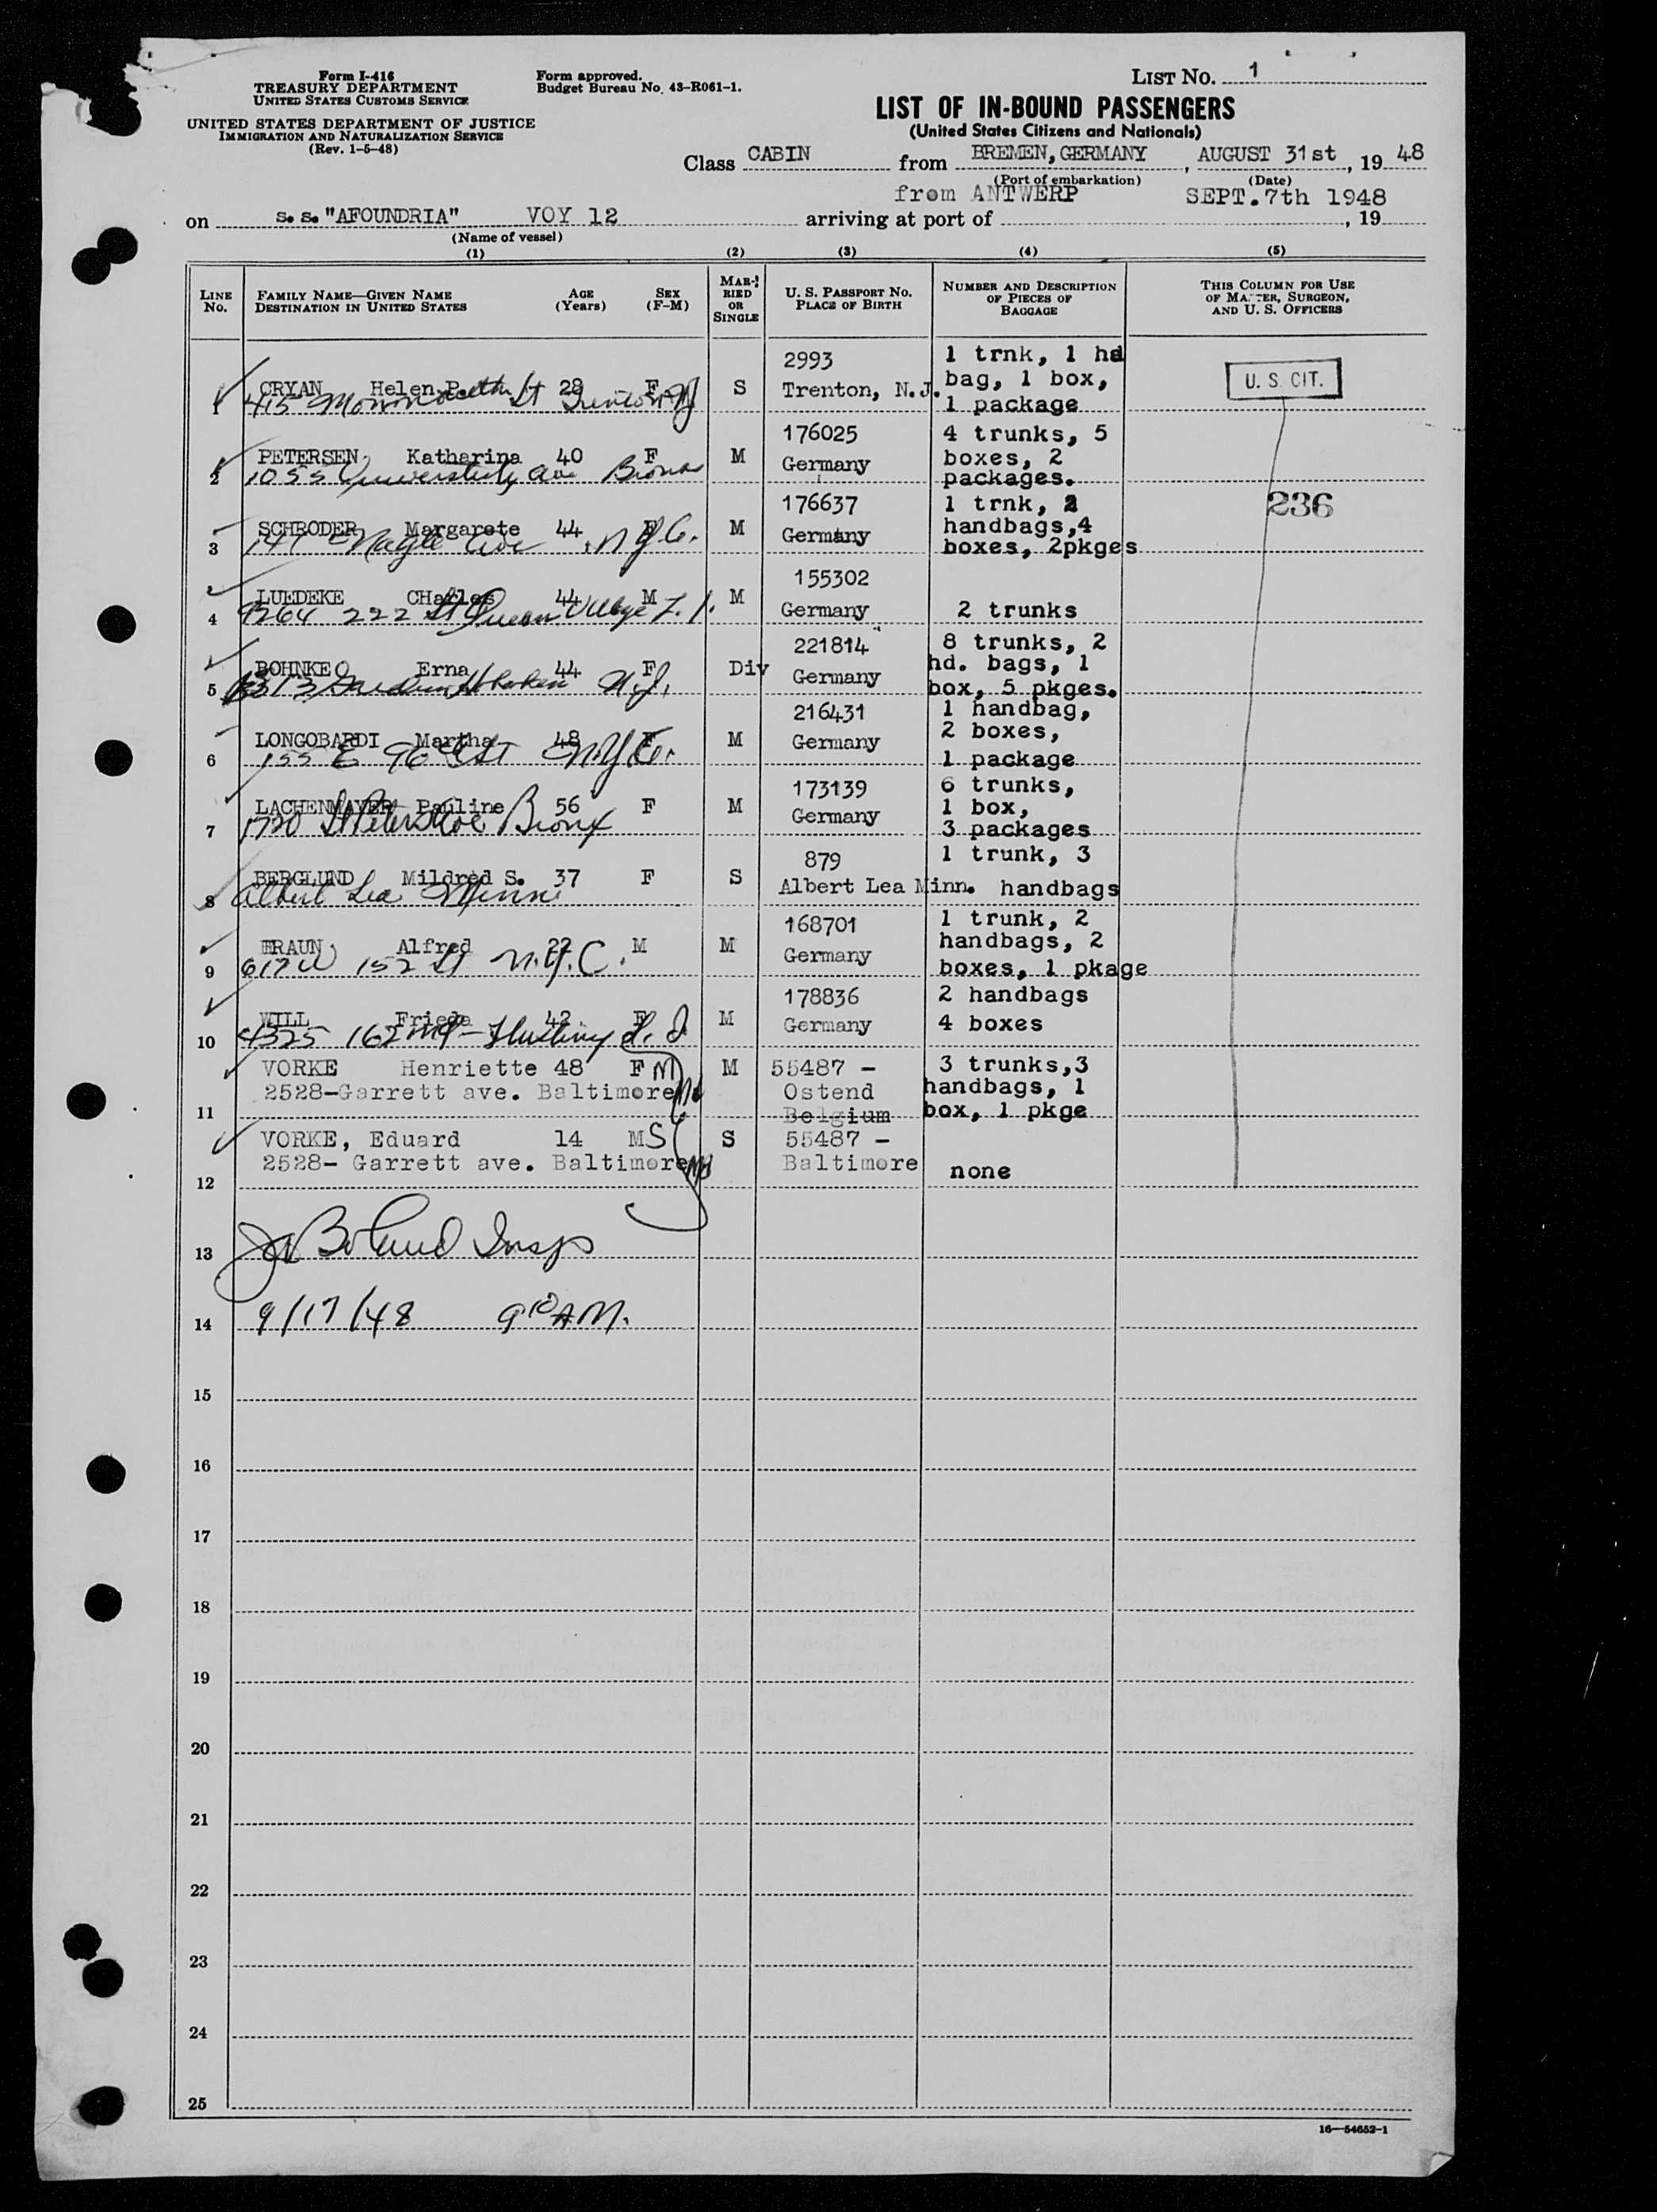 Form I-416
TREASURY DEPARTMENT
UNITED STATES CUSTOMS SERVICE
UNITED STATES DEPARTMENT OF JUSTICE
IMMIGRATION AND NATURALIZATION SERVICE
(Rev. 1-5-48)
Form approved.
Budget Bureau No. 43-R061-1.
LIST NO. 1
LIST OF IN-BOUND PASSENGERS
(United States Citizens and Nationals)
Class CABIN from BREMEN, GERMANY, AUGUST 31st, 19 48
(Port of embarkation) (Date)
from ANTWERP SEPT. 7th 1948
on s. s. "AFOUNDRIA" VOY 12 arriving at port of , 19
(Name of vessel)
(1) (2) (3) (4) (5)
LINE NO.
FAMILY NAME—GIVEN NAME
DESTINATION IN UNITED STATES
AGE
(Years)
SEX
(F-M)
MARRIED
OR
SINGLE
U. S. PASSPORT NO.
PLACE OF BIRTH
NUMBER AND DESCRIPTION
OF PIECES OF
BAGGAGE
THIS COLUMN FOR USE
OF MASTER, SURGEON,
AND U. S. OFFICERS
2993 1 trnk, 1 hd
1 CRYAN Helen P. 29 F S Trenton, N.J. bag, 1 box, U. S. CIT.
415 Monmouth St Trenton NJ 1 package
176025 4 trunks, 5
2 PETERSEN Katharina 40 F M Germany boxes, 2
1055 University Ave Bronx packages.
176637 1 trnk, 2 236
3 SCHRODER Margarete 44 F M Germany handbags,4
147 Nagle Ave N Y C. boxes, 2pkges
155302
4 LUEDEKE CHarles 44 M M Germany 2 trunks
9264 222 St Queens Village L. I.
221814 8 trunks, 2
5 BOHNKE Erna 44 F Div Germany hd. bags, 1
1313 Garden Hoboken N.J. box, 5 pkges.
216431 1 handbag,
6 LONGOBARDI Martha 48 F M Germany 2 boxes,
155 E 96 St N.Y.C. 1 package
173139 6 trunks,
7 LACHENMAYER Pauline 56 F M Germany 1 box,
1720 St Peters Ave Bronx 3 packages
879 1 trunk, 3
8 BERGLUND Mildred S. 37 F S Albert Lea Minn. handbags
Albert Lea Minn
168701 1 trunk, 2
9 BRAUN Alfred 22 M M Germany handbags, 2
617 W 152 St N.Y.C. boxes, 1 pkage
178836 2 handbags
10 WILL Frieda 42 F M Germany 4 boxes
4325 162nd - Flushing L. I
VORKE Henriette 48 F M M 55487 - 3 trunks,3
2528-Garrett ave. Baltimore Md Ostend handbags, 1
11 Belgium box, 1 pkge
VORKE, Eduard 14 M S S 55487 -
2528- Garrett ave. Baltimore Md Baltimore none
12
13 Boland Insp
14 9/17/48 9 10 AM.
15
16
17
18
19
20
21
22
23
24
25
16—54652-1